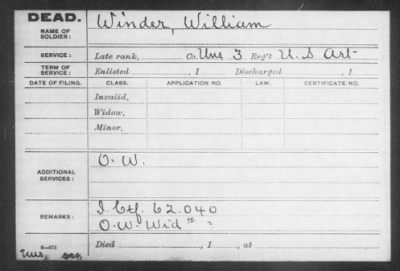 DEAD.
NAME OF SOLDIER:
Winder, William
SERVICE:
Late rank, Co. Uns 3 Reg't U. S Art
TERM OF SERVICE:
Enlisted , 1 Discharged , 1
DATE OF FILING. CLASS. APPLICATION NO. LAW. CERTIFICATE NO.
Invalid,
Widow,
Minor,
ADDITIONAL SERVICES:
O. W.
REMARKS:
I. Ctf. 62.040
O. W. Wid
Died , 1 , at